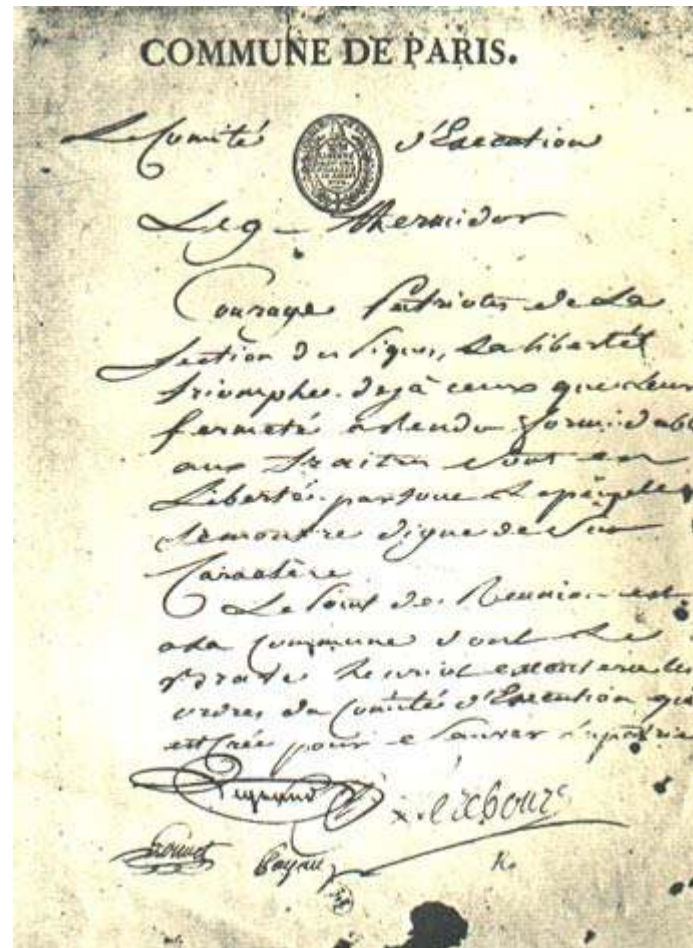 COMMUNE DE PARIS.
Le Comité d'Execution
Le 9 - thermidor
Courage Patriotes de La
Section des Piques, La liberté
triomphe. deja ceux que Leur
fermeté a rendu formidab
aux traitres sont en
Liberté. partout Le peuple
se montre digne de Son
Caractère
Le Point de Reunion est
a La Commune dont Le
Brave henriot executera les
ordres du Comité d'Execution qui
est Créé pour Sauver La patrie
Legrand Lerebours
Louvet Payan R.